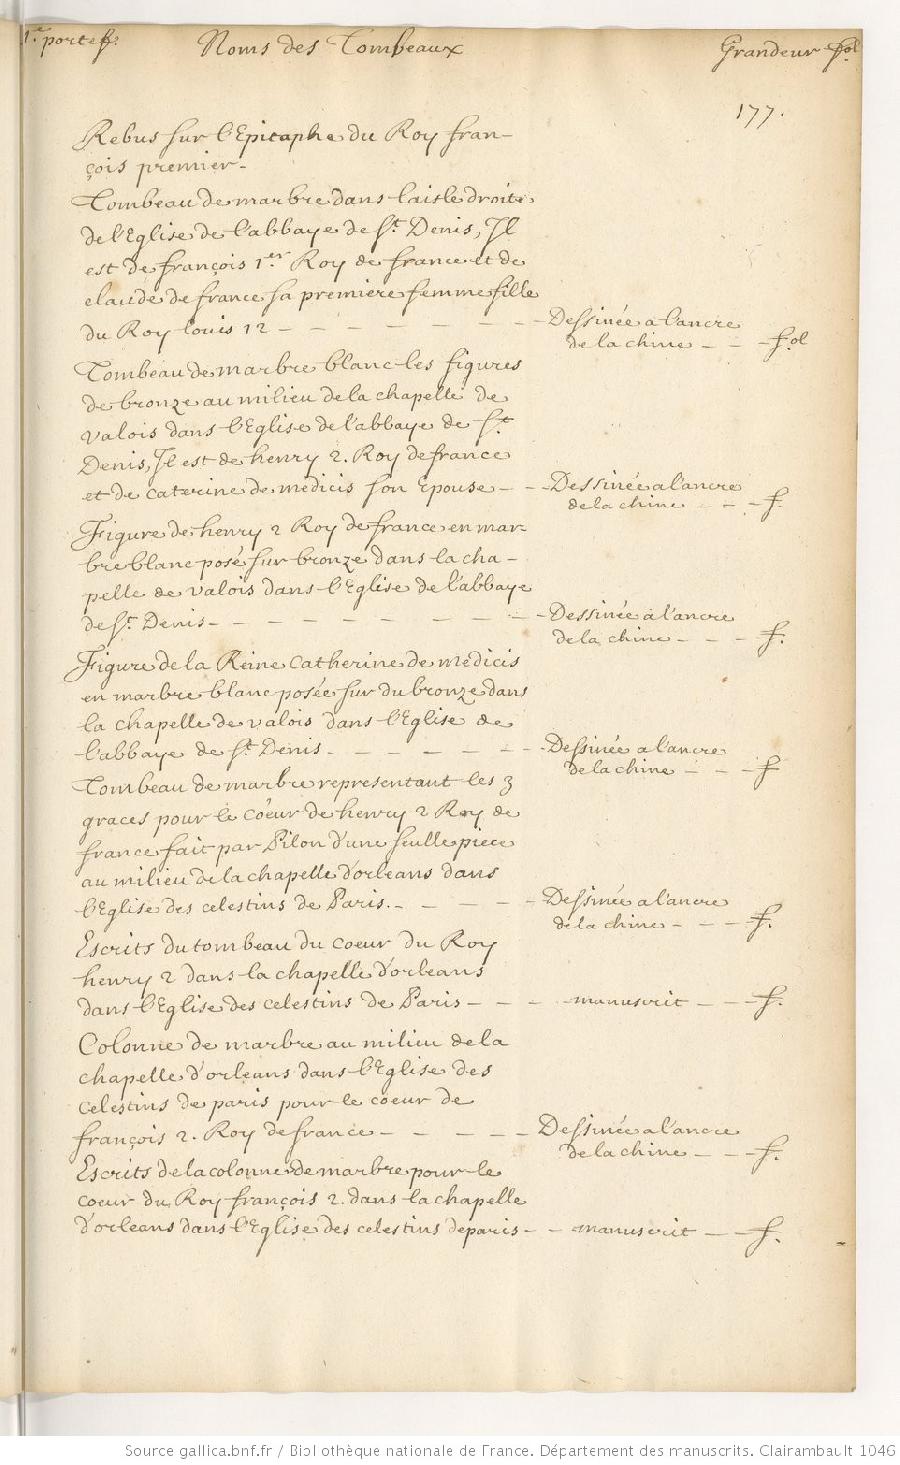 1.e portef. Noms des Tombeaux Grandeur fol
177.
Rebus sur l'Epitaphe du Roy fran-
çois premier-
Tombeau de marbre dans l'aisle droite
de l'Eglise de l'abbaye de St. Denis, Jl
est de françois 1.er Roy de france et de
claude de france sa premiere femme fille
du Roy louis 12 - - - - - - - - Dessinée a l'ancre
de la chine - - - fol
Tombeau de marbre blanc les figures
de bronze au milieu de la chapelle de
valois dans l'Eglise de l'abbaye de St.
Denis, Jl est de henry 2. Roy de france
et de caterine de medicis son epouse - - Dessinée a l'ancre
de la chine - - f.
Figure de henry 2 Roy de france en mar-
bre blanc posé sur bronze dans la cha-
pelle de valois dans l'Eglise de l'abbaye
de St. Denis - - - - - - - - - Dessinée a l'ancre
de la chine - - - f.
Figure de la Reine Catherine de medicis
en marbre blanc posée sur du bronze dans
la chapelle de valois dans l'Eglise de
l'abbaye de St. Denis - - - - - - Dessinée a l'ancre
de la chine - - - f
Tombeau de marbre representant les 3
graces pour le coeur de henry 2 Roy de
france fait par Pilon d'une seulle piece
au milieu de la chapelle d'orleans dans
l'Eglise des celestins de Paris. - - - - - Dessinée a l'ancre
de la chine - - - f.
Escrits du tombeau du coeur du Roy
henry 2 dans la chapelle d'orleans
dans l'Eglise des celestins de Paris - - - manuscrit - - f.
Colonne de marbre au milieu de la
chapelle d'orleans dans l'Eglise des
celestins de paris pour le coeur de
françois 2. Roy de france - - - - - Dessinée a l'ancre
de la chine - - - f.
Escrits de la colonne de marbre pour le
coeur du Roy françois 2. dans la chapelle
d'orleans dans l'Eglise des celestins de paris - - manuscrit - - f.
Source gallica.bnf.fr / Bibliothèque nationale de France. Département des manuscrits. Clairambault 1046